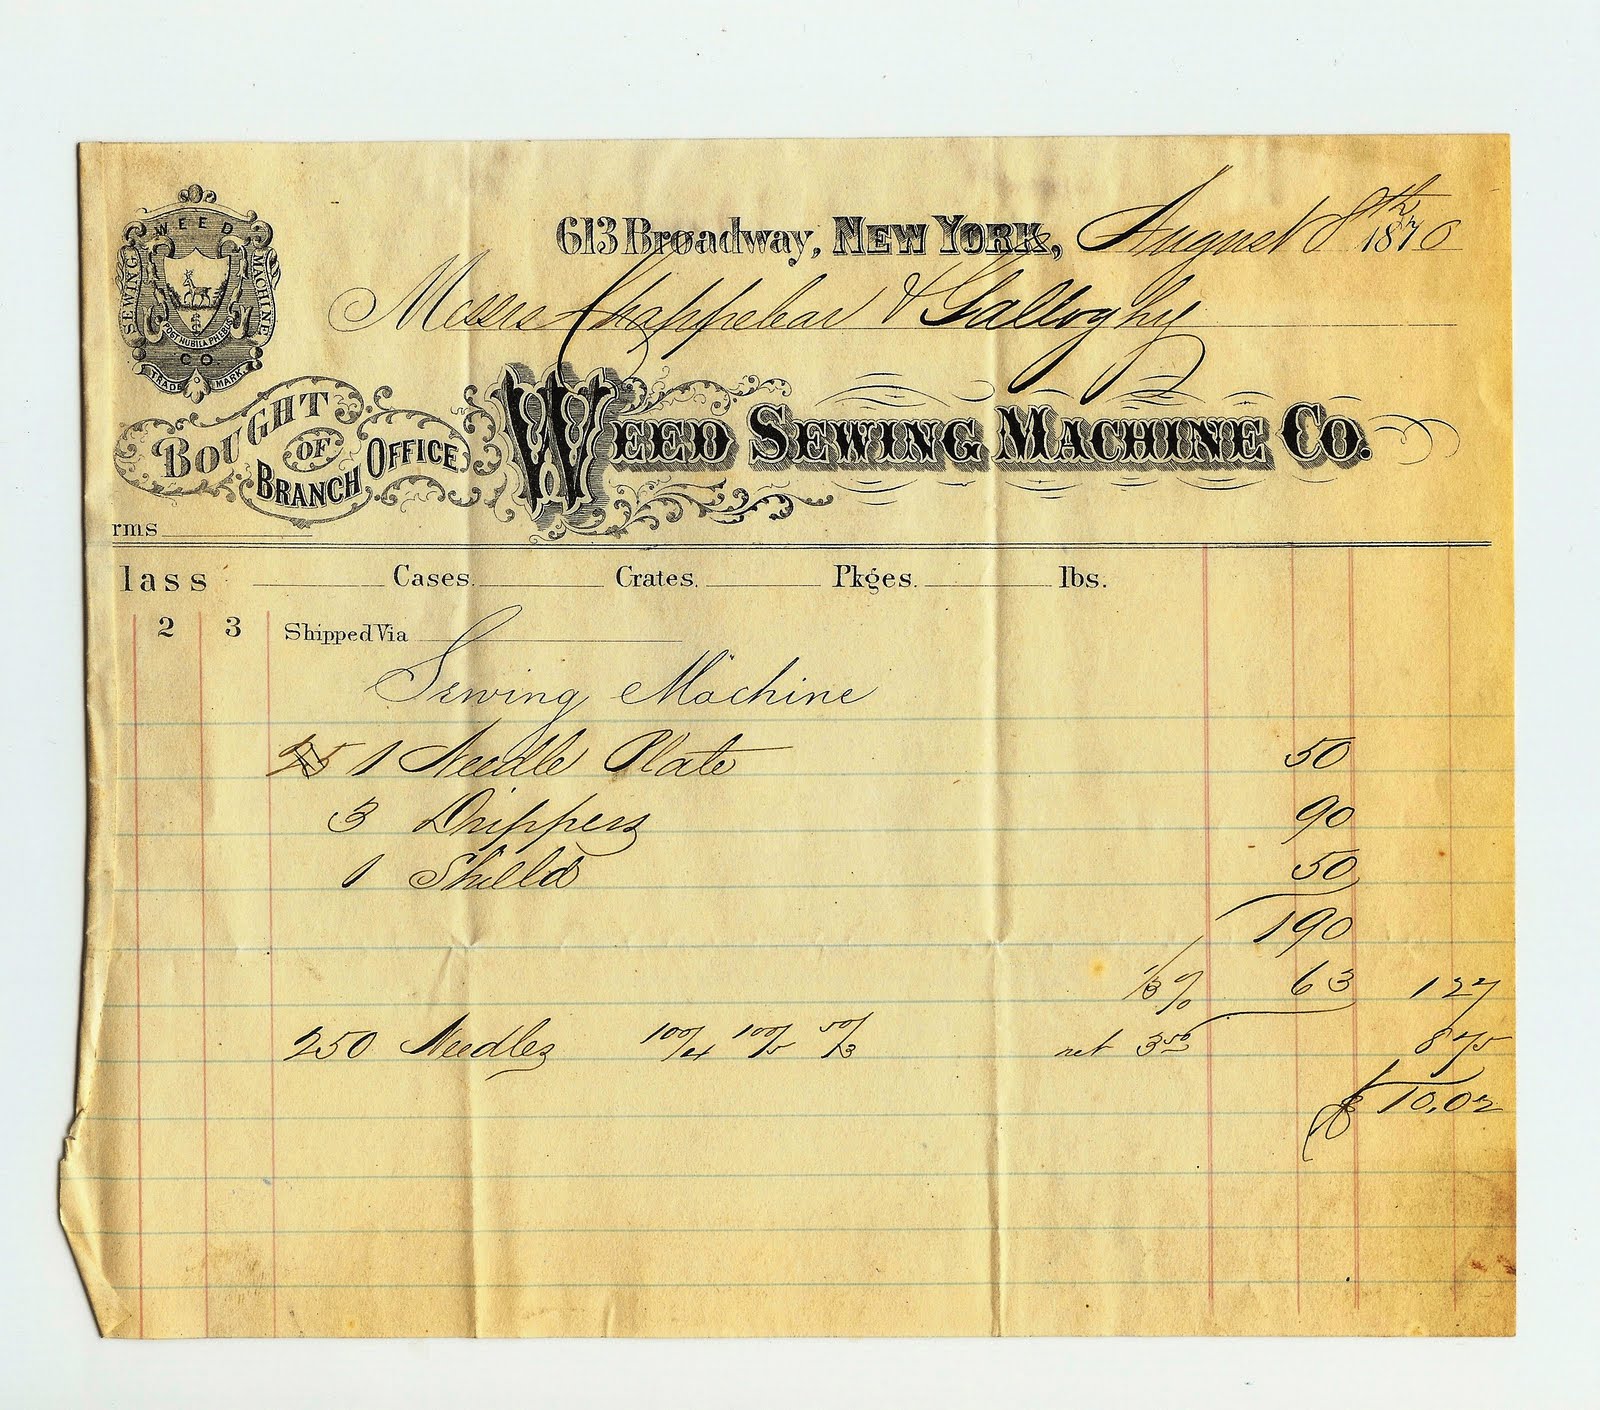 WEED
SEWING
MACHINE
POST NUBILA PHEBUS
CO
TRADE MARK.
613 Broadway, NEW YORK, August 8th 1870
Messrs Chappelear & Galloghy
BOUGHT OF BRANCH OFFICE WEED SEWING MACHINE CO.
rms
lass Cases. Crates. Pkges. lbs.
2 3 Shipped Via
Sewing Machine
1 Needle Plate 50
3 Drippers 90
1 Shield 50
190
1/3 % 63 127
250 Needles 100/4 100/5 50/3 net 3.50 875
$ 10.02